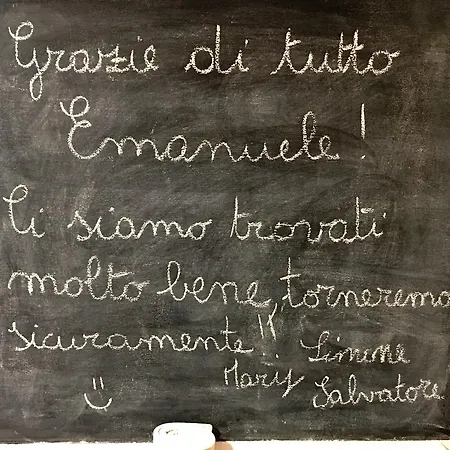 Grazie di tutto
Emanuele!
Ci siamo trovati
molto bene, torneremo
sicuramente!!
Simone
Mary
Salvatore